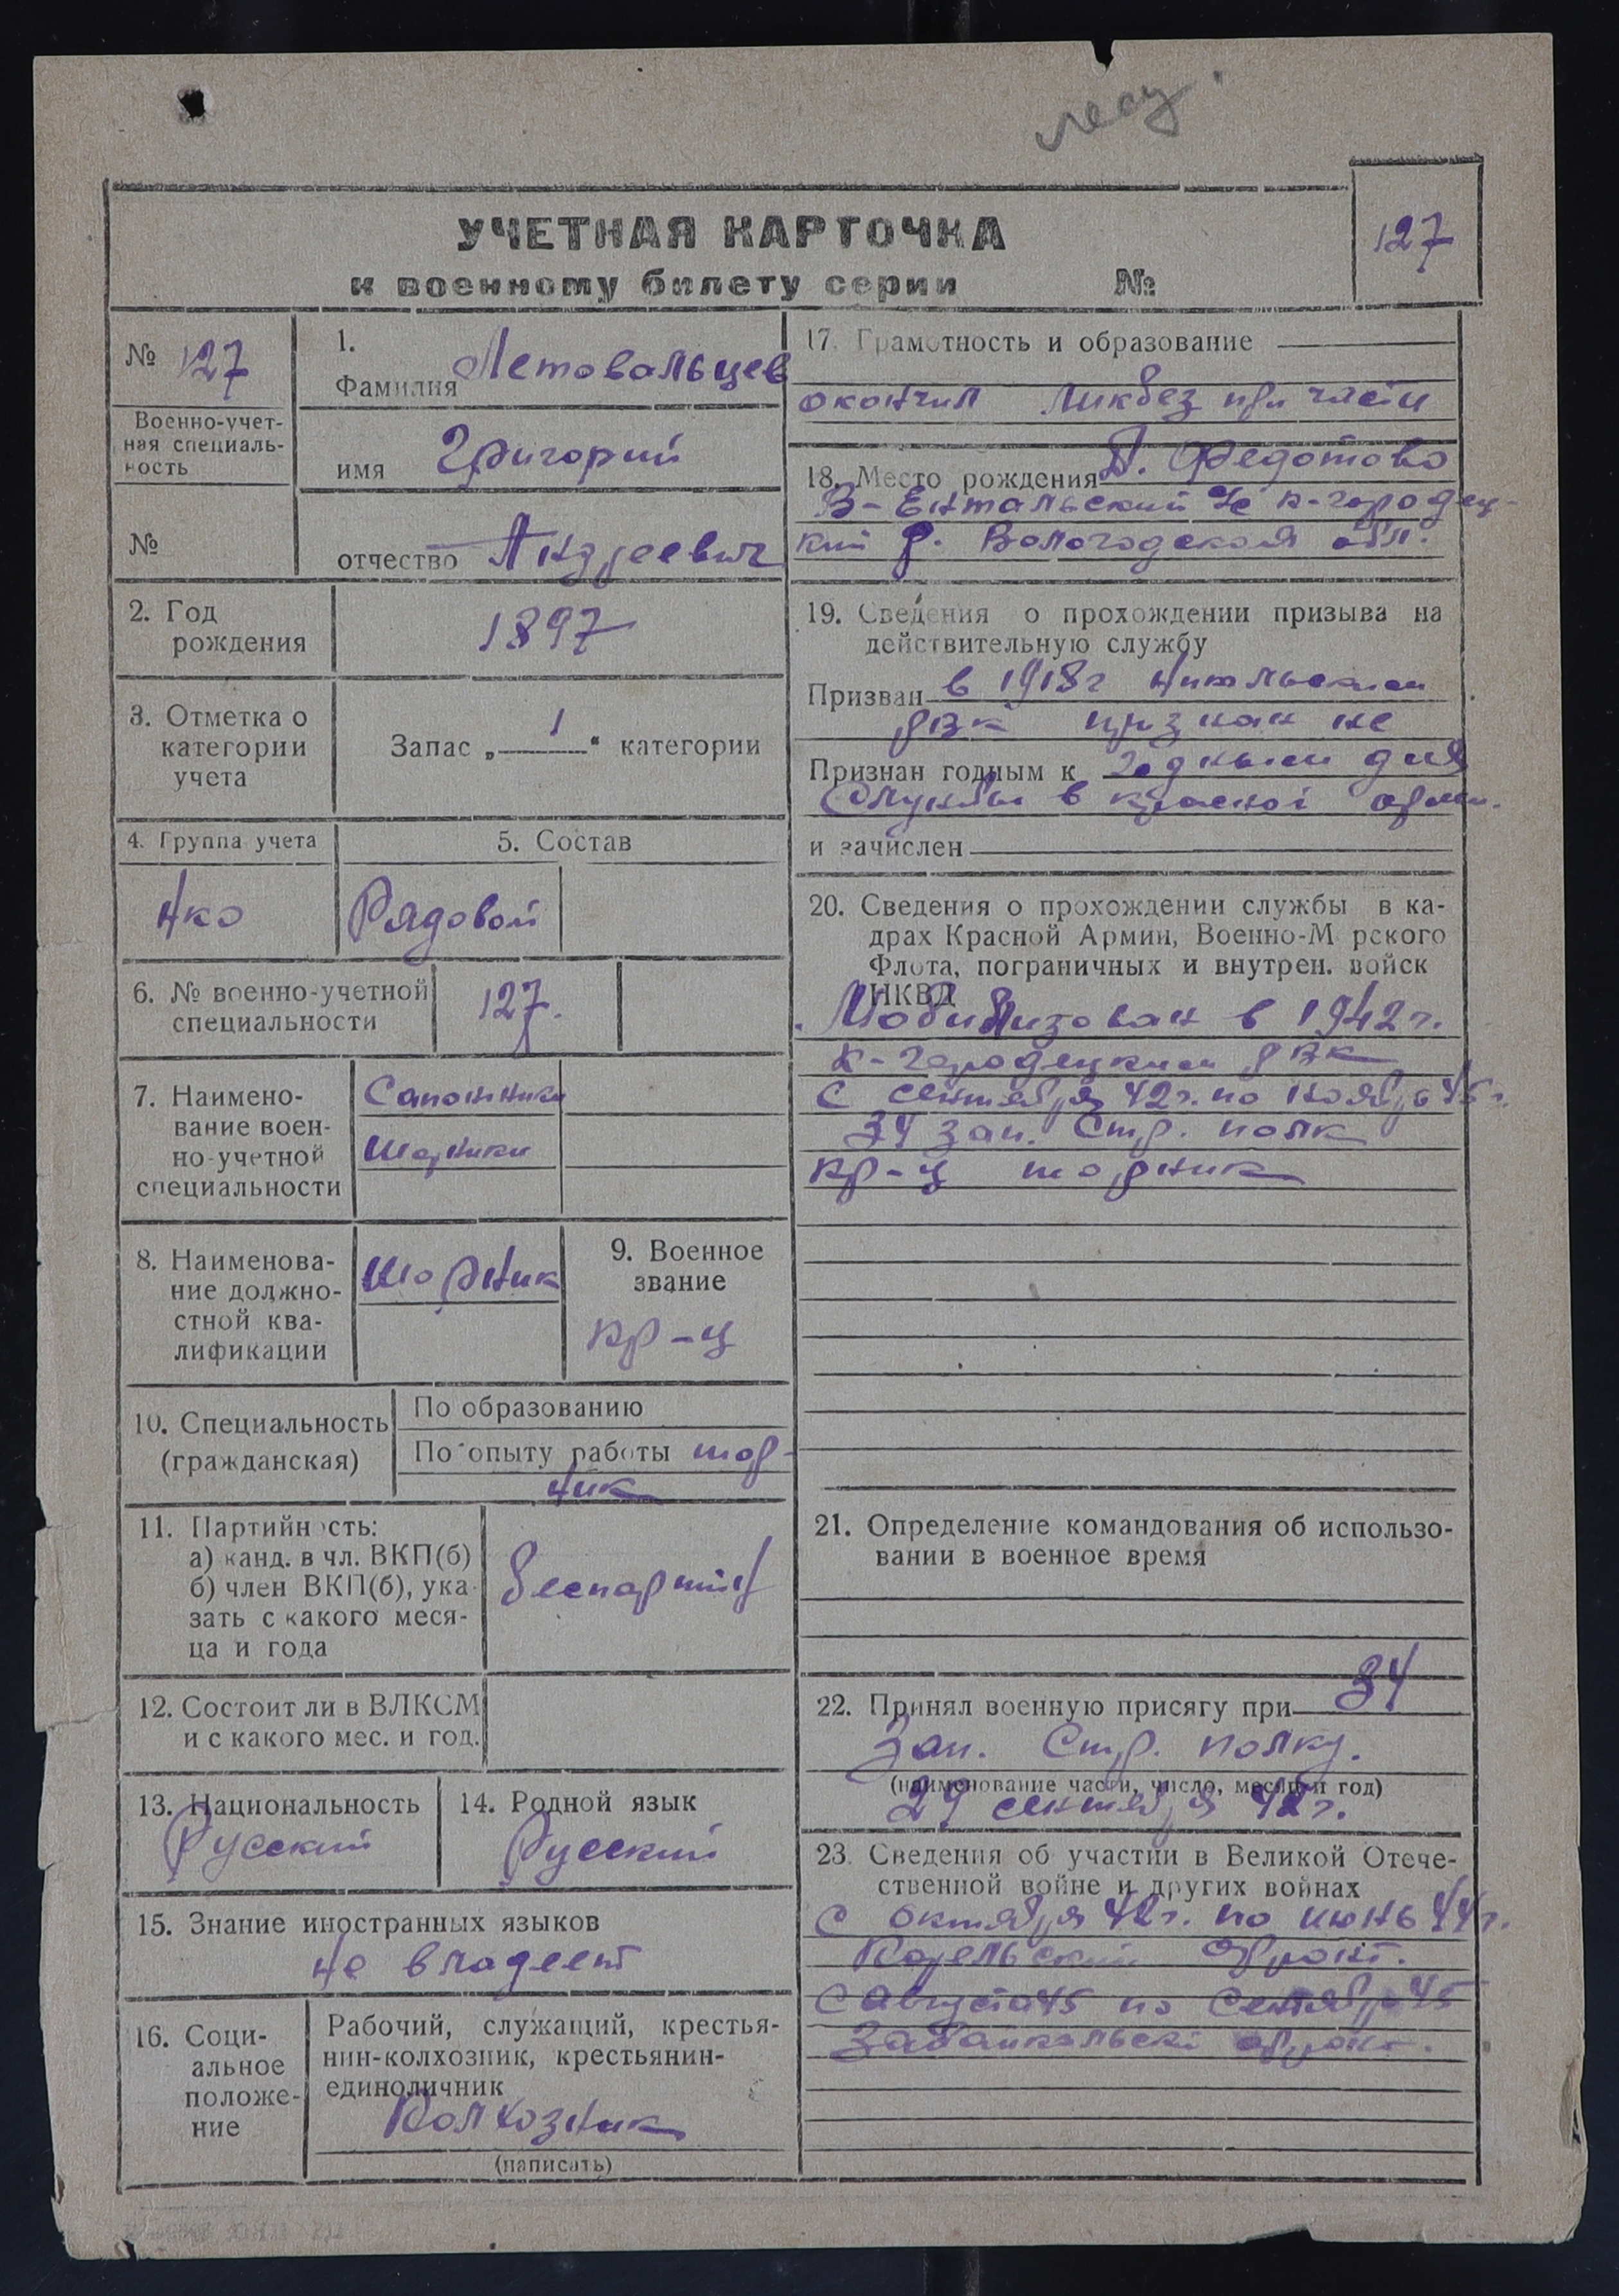 УЧЕТНАЯ КАРТОЧКА
127
к военному билету серии №
№ 127
Военно-учет-
ная специаль-
ность
№
1.
Фамилия Летовальцев
имя Григорий
отчество Андреевич
2. Год
рождения
1897
3. Отметка о
категории
учета
Запас „ 1 “ категории
4. Группа учета
5. Состав
Нко
Рядовой
6. № военно-учетной
специальности
127.
7. Наимено-
вание воен-
но-учетной
специальности
Сапожники
Шорники
8. Наименова-
ние должно-
стной ква-
лификации
Шорник
9. Военное
звание
кр-ц
10. Специальность
(гражданская)
По образованию
По опыту работы шор-
ник
11. Партийность:
а) канд. в чл. ВКП(б)
б) член ВКП(б), ука-
зать с какого меся-
ца и года
беспартий
12. Состоит ли в ВЛКСМ
и с какого мес. и год.
13. Национальность
Русский
14. Родной язык
Русский
15. Знание иностранных языков
не владеет
16. Соци-
альное
положе-
ние
Рабочий, служащий, крестья-
нин-колхозник, крестьянин-
единоличник
Колхозник
(написать)
17. Грамотность и образование
окончил Ликбез при части
18. Место рождения д. Федотово
В-Ентальский с/с к-городец-
кий р. Вологодской обл.
19. Сведения о прохождении призыва на
действительную службу
Призван в 1918г
рвк признан не
Признан годным к годным для
службы в красной арми.
и зачислен
20. Сведения о прохождении службы в ка-
драх Красной Армии, Военно-М рского
Флота, пограничных и внутрен. войск
НКВД
Мобилизован в 1942г.
к-городецким рвк
с сентября 42г. по ноябрь 45г.
34 зап. стр. полк
кр-ц шорник
21. Определение командования об использо-
вании в военное время
22. Принял военную присягу при 34
зап. стр. полку.
(наименование части, число, месяц и год)
29 сентября 42г.
23. Сведения об участии в Великой Отече-
ственной войне и других войнах
с октября 42г. по июнь 44г.
Карельский фронт.
с августа 45 по сентябрь 45
Забайкальскй фронт.